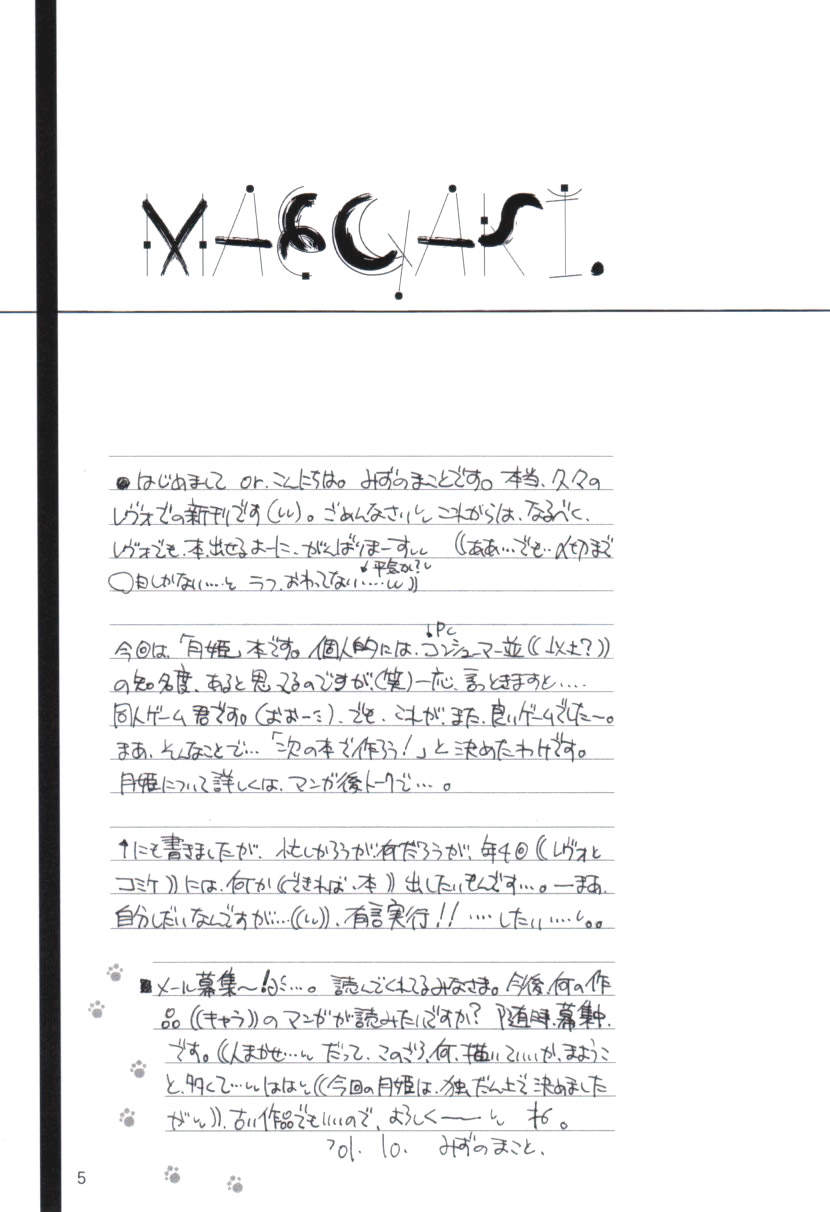 MAEGAKI.
●はじめまして or.こんにちは。みずのまことです。本当、久々の
レヴォでの新刊です(しし)。ごめんなさいしし これからは、なるべく、
レヴォでも、本、出せるよーに、がんばりまーすしし ((ああ…でも…〆切まで
↓平気か?し
〇日しかない…そ ラフ、おわってない……しし))
↓PC
今回は、「月姫」本です。個人的には、コンシューマー並((以上?))
の知名度、あると思ってるのですが、(笑)一応、言っときますと……
同人ゲーム君です。(おおーミ)、でも、これが、また、良いゲームでした〜。
まあ、そんなことで…「次の本で作ろう!」と決めたわけです。
月姫について詳しくは、マンガ後トークで…。
↑にも書きましたが、忙しかろうが何だろうが、年4回((レヴォと
コミケ))には、何か((できれば、本))出したいもんです…。—まあ、
自分しだいなんですが…((しし))、有言実行!! ‥‥したい‥‥し。。
■メール募集〜!…。読んでくれてるみなさま。今後、何の作
品((キャラ))のマンガが読みたいですか? 随時、募集中、
です。((人まかせ…しし だって、このごろ、何、描いていいか、まようこ
と、多くて…しし ははし((今回の月姫は、独だん上で決めました
がしし))、古い作品でもいいので、よろしく——しし ね。
'01. 10. みずのまこと、
5